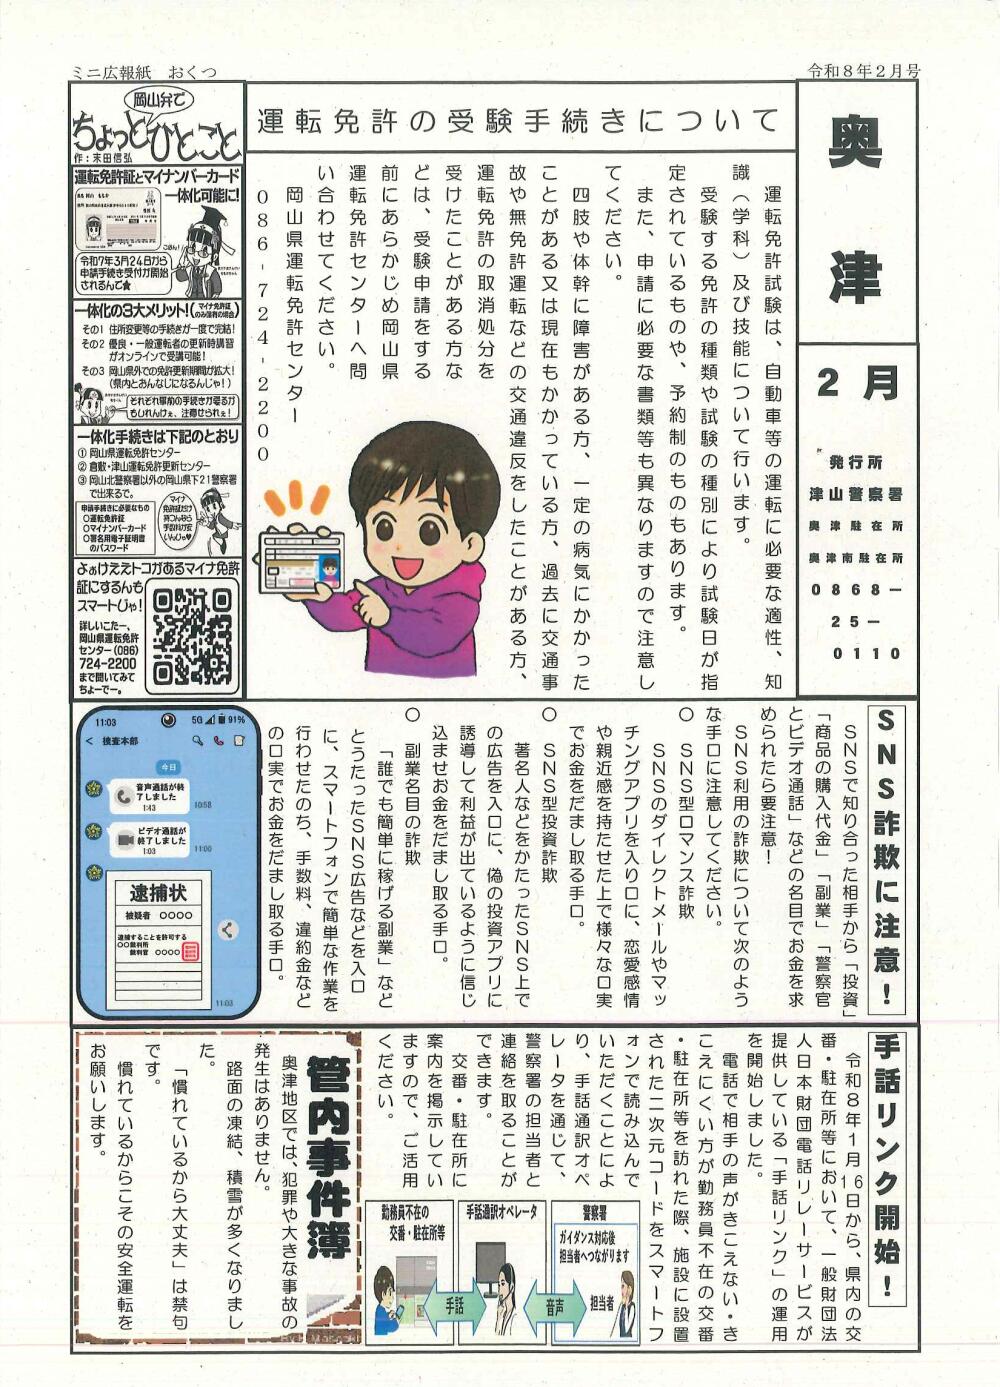 ミニ広報紙　おくつ
令和８年２月号
奥津
２月
発行所
津山警察署
奥津駐在所
奥津南駐在所
０８６８－
２５－
０１１０
運転免許の受験手続きについて
　運転免許試験は、自動車等の運転に必要な適性、知
識（学科）及び技能について行います。
　受験する免許の種類や試験の種別により試験日が指
定されているものや、予約制のものもあります。
　また、申請に必要な書類等も異なりますので注意し
てください。
　四肢や体幹に障害がある方、一定の病気にかかった
ことがある又は現在もかかっている方、過去に交通事
故や無免許運転などの交通違反をしたことがある方、
運転免許の取消処分を
受けたことがある方な
どは、受験申請をする
前にあらかじめ岡山県
運転免許センターへ問
い合わせてください。
　岡山県運転免許センター
０８６－７２４－２２００
岡山弁で
ちょっとひとこと
作：末田信弘
運転免許証とマイナンバーカード
一体化可能に！
ごほん！
令和7年3月24日から
申請手続き受付が開始
されるんで★
一体化の3大メリット！（マイナ免許証のみ保有の場合）
その1 住所変更等の手続きが一度で完結！
その2 優良・一般運転者の更新時講習
がオンラインで受講可能！
その3 岡山県外での免許更新期間が拡大！
（県内とおんなじになるんじゃ！）
それぞれ事前の手続きが要るか
もしれんけぇ、注意せられぇ！
一体化手続きは下記のとおり
① 岡山県運転免許センター
② 倉敷・津山運転免許更新センター
③ 岡山北警察署以外の岡山県下21警察署
で出来るで。
申請手続きに必要なもの
〇運転免許証
〇マイナンバーカード
〇署名用電子証明書
のパスワード
マイナ
免許証だけ
持つんなら
手数料が安
いんじゃ♥
よぉけええトコがあるマイナ免許
証にするんも
スマートじゃ！
詳しいこたー、
岡山県運転免許
センター（086）
724-2200
まで聞いてみて
ちょーでー。
ＳＮＳ詐欺に注意！
　ＳＮＳで知り合った相手から「投資」
「商品の購入代金」「副業」「警察官
とビデオ通話」などの名目でお金を求
められたら要注意！
　ＳＮＳ利用の詐欺について次のよう
な手口に注意してください。
〇　ＳＮＳ型ロマンス詐欺
　ＳＮＳのダイレクトメールやマッ
チングアプリを入り口に、恋愛感情
や親近感を持たせた上で様々な口実
でお金をだまし取る手口。
〇　ＳＮＳ型投資詐欺
　著名人などをかたったＳＮＳ上で
の広告を入口に、偽の投資アプリに
誘導して利益が出ているように信じ
込ませお金をだまし取る手口。
〇　副業名目の詐欺
　「誰でも簡単に稼げる副業」など
とうたったＳＮＳ広告などを入口
に、スマートフォンで簡単な作業を
行わせたのち、手数料、違約金など
の口実でお金をだまし取る手口。
11:03
5G 91%
＜ 捜査本部
今日
音声通話が終
了しました
1:43
10:58
ビデオ通話が
終了しました
1:03
11:00
逮捕状
被疑者　〇〇〇〇
逮捕することを許可する
〇〇裁判所
裁判官　〇〇〇〇
11:03
手話リンク開始！
　令和８年１月１６日から、県内の交
番・駐在所等において、一般財団法
人日本財団電話リレーサービスが
提供している「手話リンク」の運用
を開始しました。
　電話で相手の声がきこえない・き
こえにくい方が勤務員不在の交番
・駐在所等を訪れた際、施設に設置
された二次元コードをスマートフ
ォンで読み込んで
いただくことによ
り、手話通訳オペ
レータを通じて、
警察署の担当者と
連絡を取ることが
できます。
　交番・駐在所に
案内を掲示してい
ますので、ご活用
ください。
勤務員不在の
交番・駐在所等
手話
手話通訳オペレータ
音声
警察署
ガイダンス対応後
担当者へつながります
担当者
管内事件簿
　奥津地区では、犯罪や大きな事故の
発生はありません。
　路面の凍結、積雪が多くなりまし
た。
　「慣れているから大丈夫」は禁句
です。
　慣れているからこその安全運転を
お願いします。